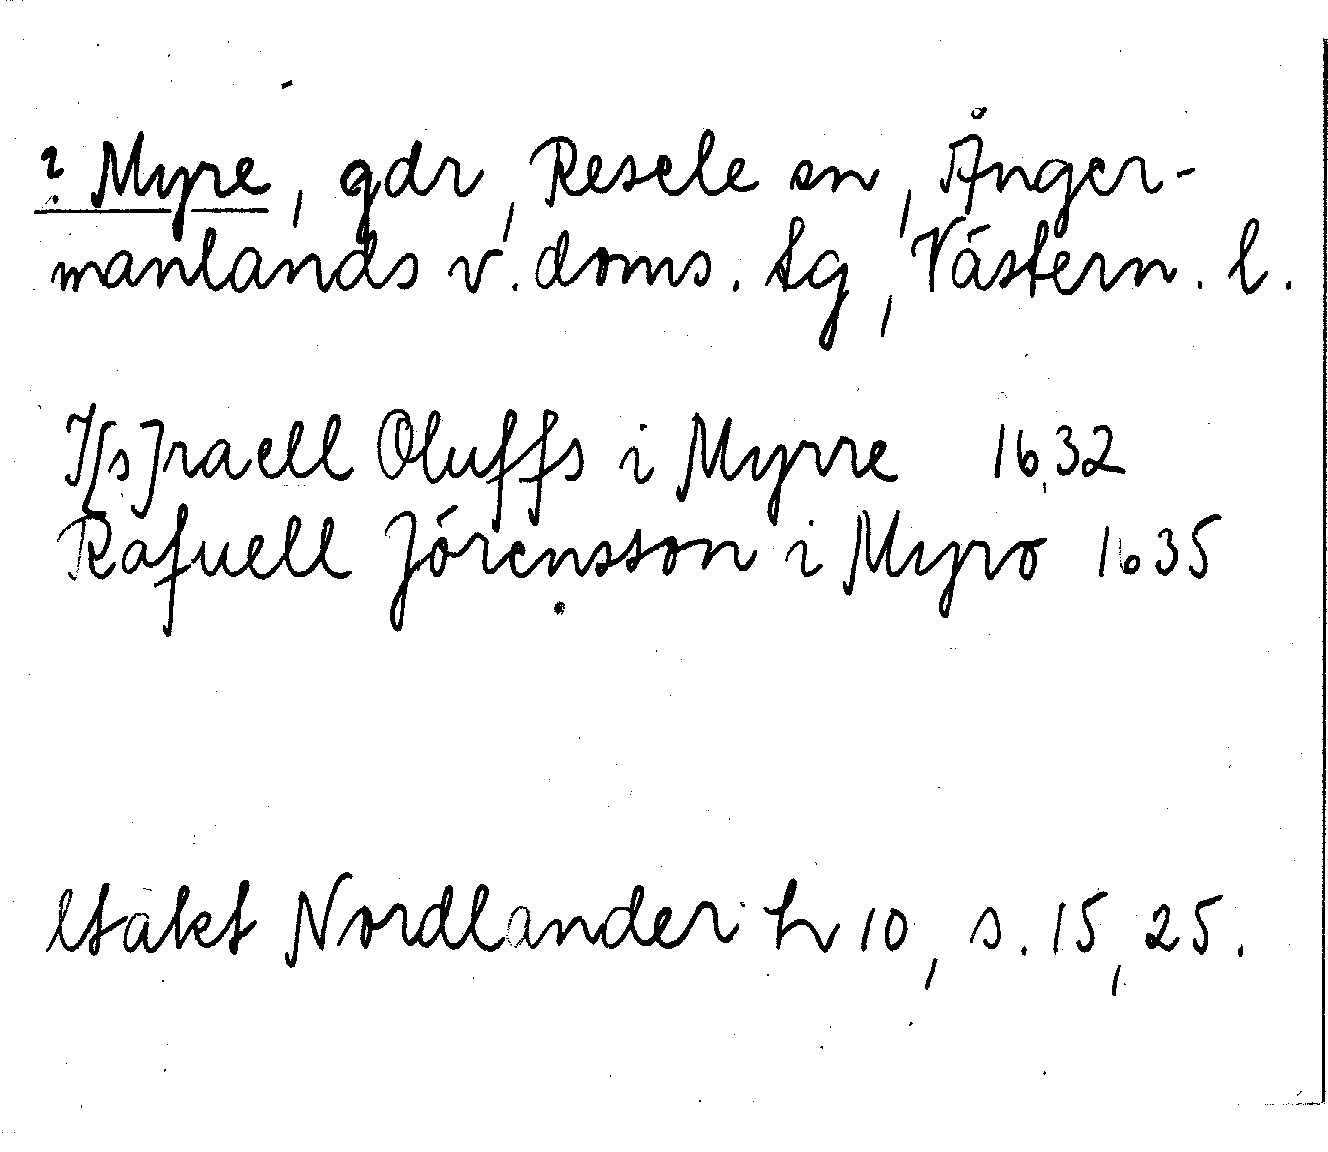 ? Myre, gdr, Resele sn, Ånger-
manlands v. doms. tg, Västern. l.
I[s]raell Oluffs i Myrre 1632
Rafuell Jörensson i Myro 1635
Utakt Nordlander h 10, s. 15, 25.